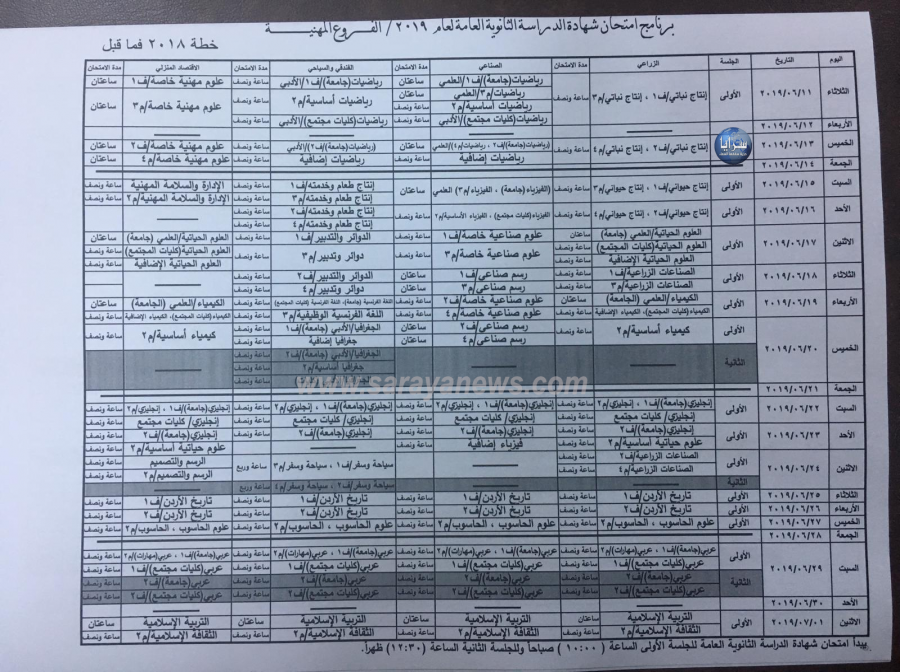 برنامج امتحان شهادة الدراسة الثانوية العامة لعام ٢٠١٩ / الفروع المهنية
خطة ٢٠١٨ فما قبل
اليوم التاريخ الجلسة الزراعي مدة الامتحان الصناعي مدة الامتحان الفندقي والسياحي مدة الامتحان الاقتصاد المنزلي مدة الامتحان
الثلاثاء ٢٠١٩/٠٦/١١ الأولى إنتاج نباتي/ف١ ، إنتاج نباتي/م٣ ساعة ونصف رياضيات(جامعة)/ف١/العلمي ساعة ونصف رياضيات(جامعة)/ف١/الأدبي ساعة ونصف علوم مهنية خاصة/ف١ ساعتان
رياضيات/م٣/العلمي ساعتان رياضيات أساسية/م٢ ساعة ونصف علوم مهنية خاصة/م٣ ساعتان
رياضيات أساسية/م٢ ساعة ونصف
الأربعاء ٢٠١٩/٠٦/١٢ رياضيات(كليات مجتمع)/الأدبي ساعة ونصف رياضيات(كليات مجتمع)/الأدبي ساعة ونصف
الخميس ٢٠١٩/٠٦/١٣ الأولى إنتاج نباتي/ف٢ ، إنتاج نباتي/م٤ ساعة ونصف رياضيات(جامعة)/ف٢ ، رياضيات/م٤/العلمي ساعتان رياضيات(جامعة)/ف٢/الأدبي ساعة ونصف علوم مهنية خاصة/ف٢ ساعتان
رياضيات إضافية ساعتان رياضيات إضافية ساعتان علوم مهنية خاصة/م٤ ساعتان
الجمعة ٢٠١٩/٠٦/١٤
السبت ٢٠١٩/٠٦/١٥ الأولى إنتاج حيواني/ف١ ، إنتاج حيواني/م٣ ساعة ونصف الفيزياء(جامعة) ، الفيزياء/م٣ العلمي ساعتان إنتاج طعام وخدمته/ف١ ساعة ونصف الإدارة والسلامة المهنية ساعة ونصف
إنتاج طعام وخدمته/م٣ ساعة ونصف الإدارة والسلامة المهنية/م٢ ساعة ونصف
الأحد ٢٠١٩/٠٦/١٦ الأولى إنتاج حيواني/ف٢ ، إنتاج حيواني/م٤ ساعة ونصف الفيزياء(كليات مجتمع) ، الفيزياء الأساسية/م٢ ساعة ونصف إنتاج طعام وخدمته/ف٢ ساعة ونصف
إنتاج طعام وخدمته/م٤ ساعة ونصف
الاثنين ٢٠١٩/٠٦/١٧ الأولى العلوم الحياتية/العلمي (جامعة) ساعتان علوم صناعية خاصة/ف١ ساعة ونصف الدوائر والتدبير/ف١ ساعة ونصف العلوم الحياتية/العلمي (جامعة) ساعتان
العلوم الحياتية(كليات المجتمع) ساعة ونصف علوم صناعية خاصة/م٣ ساعة ونصف دوائر وتدبير/م٣ ساعة ونصف العلوم الحياتية(كليات المجتمع) ساعة ونصف
العلوم الحياتية الإضافية ساعة ونصف العلوم الحياتية الإضافية ساعة ونصف
الثلاثاء ٢٠١٩/٠٦/١٨ الأولى الصناعات الزراعية/ف١ ساعة ونصف رسم صناعي/ف١ ساعتان الدوائر والتدبير/ف٢ ساعة ونصف
الصناعات الزراعية/م٣ ساعة ونصف رسم صناعي/م٣ ساعتان دوائر وتدبير/م٤ ساعة ونصف
الأربعاء ٢٠١٩/٠٦/١٩ الأولى الكيمياء/العلمي (الجامعة) ساعتان علوم صناعية خاصة/ف٢ ساعة ونصف اللغة الفرنسية (جامعة)، اللغة الفرنسية (كليات المجتمع) ساعة ونصف الكيمياء/العلمي (الجامعة) ساعتان
الكيمياء(كليات المجتمع)، الكيمياء الإضافية ساعة ونصف علوم صناعية خاصة/م٤ ساعة ونصف اللغة الفرنسية الوظيفية/م٣ ساعة ونصف الكيمياء(كليات المجتمع)، الكيمياء الإضافية ساعة ونصف
الخميس ٢٠١٩/٠٦/٢٠ الأولى كيمياء أساسية/م٢ ساعة ونصف رسم صناعي/ف٢ ساعتان الجغرافيا/الأدبي (جامعة)/ف١ ساعة ونصف كيمياء أساسية/م٢ ساعة ونصف
رسم صناعي/م٤ ساعتان جغرافيا إضافية ساعة ونصف
الثانية الجغرافيا/الأدبي (جامعة)/ف٢ ساعة ونصف
جغرافيا أساسية/م٢ ساعة ونصف
www.sarayanews.com
الجمعة ٢٠١٩/٠٦/٢١
السبت ٢٠١٩/٠٦/٢٢ الأولى إنجليزي(جامعة)/ف١ ، إنجليزي/م٢ ساعة ونصف إنجليزي(جامعة)/ف١ ، إنجليزي/م٢ ساعة ونصف إنجليزي(جامعة)/ف١ ، إنجليزي/م٢ ساعة ونصف إنجليزي(جامعة)/ف١ ، إنجليزي/م٢ ساعة ونصف
إنجليزي/ كليات مجتمع ساعة ونصف إنجليزي/ كليات مجتمع ساعة ونصف إنجليزي/ كليات مجتمع ساعة ونصف إنجليزي/ كليات مجتمع ساعة ونصف
الأحد ٢٠١٩/٠٦/٢٣ الأولى إنجليزي(جامعة)/ف٢ ساعة ونصف إنجليزي(جامعة)/ف٢ ساعة ونصف إنجليزي(جامعة)/ف٢ ساعة ونصف إنجليزي(جامعة)/ف٢ ساعة ونصف
علوم حياتية أساسية/م٢ ساعة ونصف فيزياء إضافية ساعة ونصف علوم حياتية أساسية/م٢ ساعة ونصف
الاثنين ٢٠١٩/٠٦/٢٤ الأولى الصناعات الزراعية/ف٢ ساعة ونصف سياحة وسفر/ف١ ، سياحة وسفر/م٣ ساعة وربع الرسم والتصميم ساعة ونصف
الصناعات الزراعية/م٤ ساعة ونصف الرسم والتصميم/م٢ ساعة ونصف
الثانية سياحة وسفر/ف٢ ، سياحة وسفر/م٤ ساعة وربع
الثلاثاء ٢٠١٩/٠٦/٢٥ الأولى تاريخ الأردن/ف١ ساعة ونصف تاريخ الأردن/ف١ ساعة ونصف تاريخ الأردن/ف١ ساعة ونصف تاريخ الأردن/ف١ ساعة ونصف
الأربعاء ٢٠١٩/٠٦/٢٦ الأولى تاريخ الأردن/ف٢ ساعة ونصف تاريخ الأردن/ف٢ ساعة ونصف تاريخ الأردن/ف٢ ساعة ونصف تاريخ الأردن/ف٢ ساعة ونصف
الخميس ٢٠١٩/٠٦/٢٧ الأولى علوم الحاسوب ، الحاسوب/م٢ ساعة ونصف علوم الحاسوب ، الحاسوب/م٢ ساعة ونصف علوم الحاسوب ، الحاسوب/م٢ ساعة ونصف علوم الحاسوب ، الحاسوب/م٢ ساعة ونصف
الجمعة ٢٠١٩/٠٦/٢٨
السبت ٢٠١٩/٠٦/٢٩ الأولى عربي(جامعة)/ف١ ، عربي(مهارات)/م٢ ساعة ونصف عربي(جامعة)/ف١ ، عربي(مهارات)/م٢ ساعة ونصف عربي(جامعة)/ف١ ، عربي(مهارات)/م٢ ساعة ونصف عربي(جامعة)/ف١ ، عربي(مهارات)/م٢ ساعة ونصف
عربي(كليات مجتمع)/ف١ ساعة ونصف عربي(كليات مجتمع)/ف١ ساعة ونصف عربي(كليات مجتمع)/ف١ ساعة ونصف عربي(كليات مجتمع)/ف١ ساعة ونصف
الثانية عربي(جامعة)/ف٢ ساعة ونصف عربي(جامعة)/ف٢ ساعة ونصف عربي(جامعة)/ف٢ ساعة ونصف عربي(جامعة)/ف٢ ساعة ونصف
عربي(كليات مجتمع)/ف٢ ساعة ونصف عربي(كليات مجتمع)/ف٢ ساعة ونصف عربي(كليات مجتمع)/ف٢ ساعة ونصف عربي(كليات مجتمع)/ف٢ ساعة ونصف
الأحد ٢٠١٩/٠٦/٣٠
الاثنين ٢٠١٩/٠٧/٠١ الأولى التربية الإسلامية ساعتان التربية الإسلامية ساعتان التربية الإسلامية ساعتان التربية الإسلامية ساعتان
الثقافة الإسلامية/م٢ ساعة ونصف الثقافة الإسلامية/م٢ ساعة ونصف الثقافة الإسلامية/م٢ ساعة ونصف الثقافة الإسلامية/م٢ ساعة ونصف
يبدأ امتحان شهادة الدراسة الثانوية العامة للجلسة الأولى الساعة (١٠:٠٠) صباحاً وللجلسة الثانية الساعة (١٢:٣٠) ظهراً.
سرايا